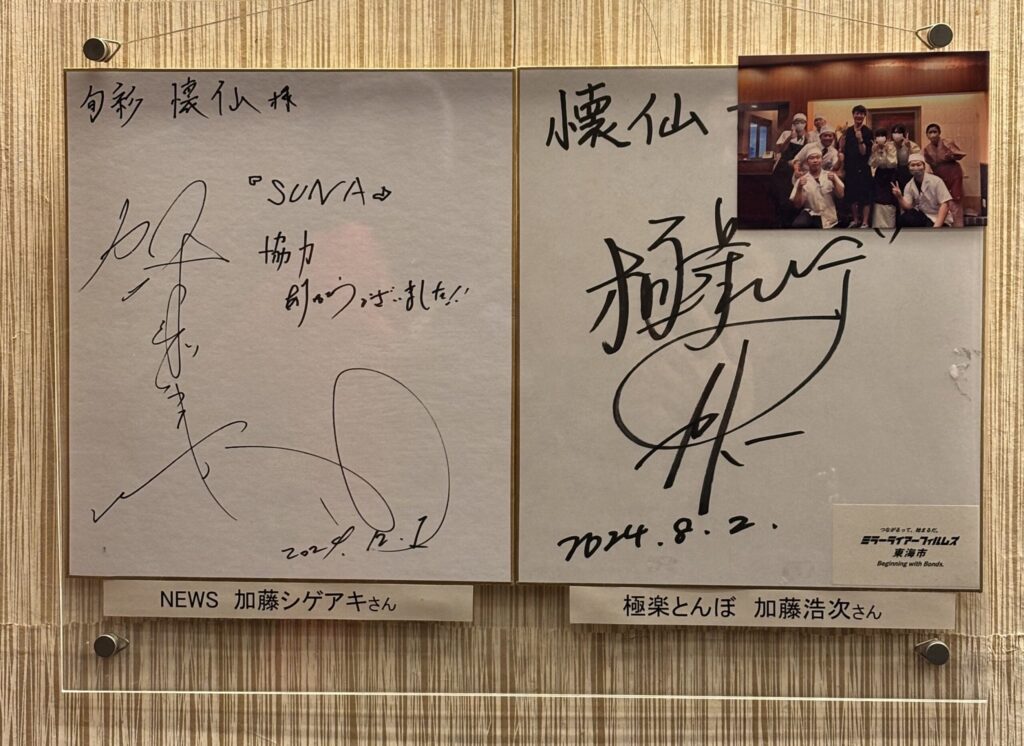 旬彩 懐仙 様
『SUNA』
協力
ありがとうございました!!
2024.12.1
NEWS 加藤シゲアキさん
懐仙
極楽とんぼ
2024.8.2.
つながるって、始まるだ。
ミラーライアーフィルムズ
東海市
Beginning with Bonds.
極楽とんぼ 加藤浩次さん